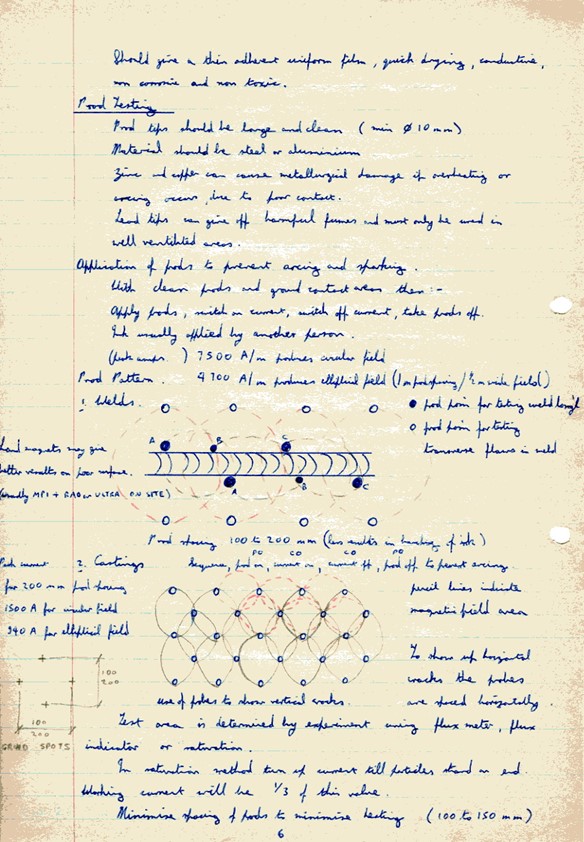 Should give a thin adherent uniform film, quick drying, conductive,
non corrosive and non toxic.
Prod Testing
Prod tips should be large and clean (min Ø 10 mm)
Material should be steel or aluminium
Zinc and copper can cause metallurgical damage if overheating or
arcing occurs, due to poor contact.
Lead tips can give off harmful fumes and must only be used in
well ventilated areas.
Application of prods to prevent arcing and sparking.
With clean prods and good contact areas then :-
Apply prods, switch on current, switch off current, take prods off.
Ink usually applied by another person.
(peak amps. ) 7500 A/m produces circular field
Prod Pattern. 4700 A/m produces elliptical field (1 m prod spacing / ½ m wide field)
1. Welds.
● prod posn for testing weld length
○ prod posn for testing
transverse flaws in weld
A B C
A B C
Hand magnets may give
better results on poor surface.
(usually MPI + RAD or ULTRA ON SITE)
Prod spacing 100 to 200 mm (less results in banding of ink)
PO CO CO PO
Peak current 2. Castings Sequence, prod on, current on, current off, prod off to prevent arcing
for 200 mm prod spacing
1500 A for circular field
940 A for elliptical field
pencil lines indicate
magnetic field area
To show up horizontal
cracks the probes
are spaced horizontally.
100
200
100
200
GRIND SPOTS
use of probes to show vertical cracks.
Test area is determined by experiment using flux meter, flux
indicator or saturation.
In saturation method turn up current till particles stand on end.
Working current will be 1/3 of this value.
Minimise spacing of prods to minimise heating (100 to 150 mm)
6